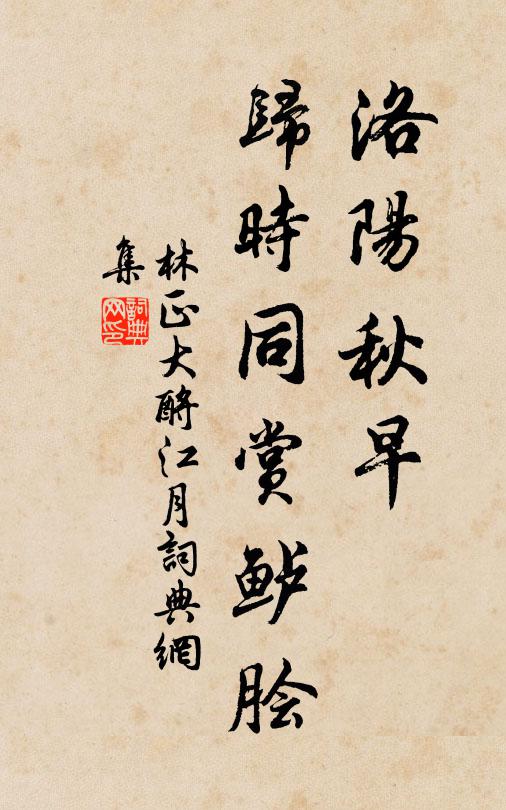 洛陽秋早
歸時同賞鲈脍
林正大酹江月詞典網
集
詞典
网印